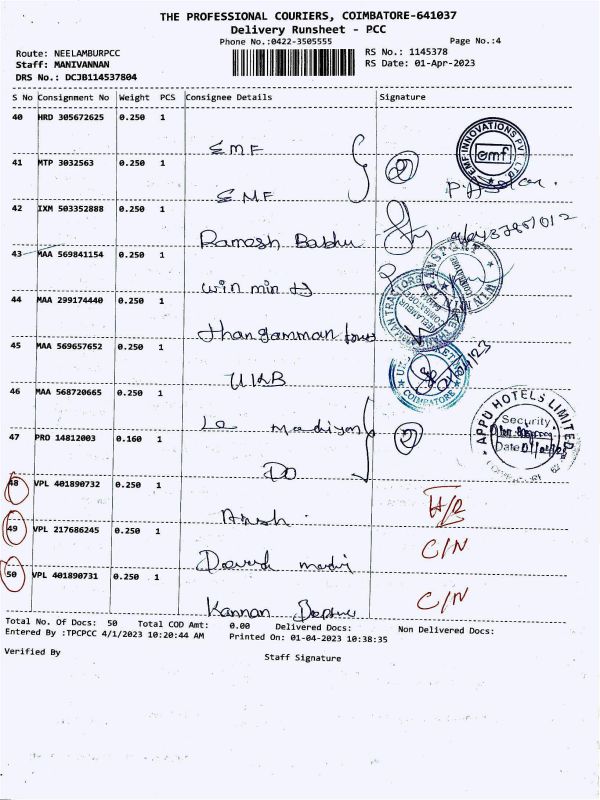 THE PROFESSIONAL COURIERS, COIMBATORE-641037
Delivery Runsheet - PCC
Phone No.:0422-3505555 Page No.:4
Route: NEELAMBURPCC RS No.: 1145378
Staff: MANIVANNAN RS Date: 01-Apr-2023
DRS No.: DCJB114537804
S No Consignment No Weight PCS Consignee Details Signature
40 HRD 305672625 0.250 1
EMF
EMF INNOVATIONS PVT LTD
emf
41 MTP 3032563 0.250 1
EMF
42 IXM 503352888 0.250 1
Ramesh Babhu
43 MAA 569841154 0.250 1
win min
44 MAA 299174440 0.250 1
thangamman
45 MAA 569657652 0.250 1
UKB
COIMBATORE
46 MAA 568720665 0.250 1
La
APPU HOTELS LIMITED
Security
Date
47 PRO 14812003 0.160 1
DO
48 VPL 401890732 0.250 1
H/R
49 VPL 217686245 0.250 1
C/N
50 VPL 401890731 0.250 1
Kannan
C/N
Total No. Of Docs: 50 Total COD Amt: 0.00 Delivered Docs: Non Delivered Docs:
Entered By :TPCPCC 4/1/2023 10:20:44 AM Printed On: 01-04-2023 10:38:35
Verified By
Staff Signature